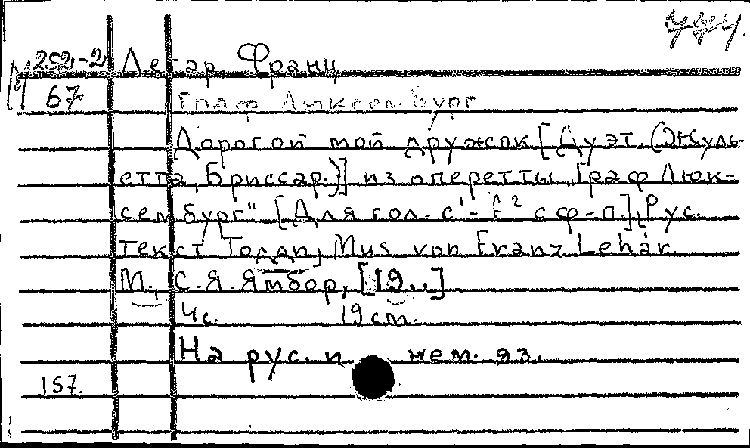 444.
М 252-2 Легар Франц
67 Граф Люксембург
Дорогой мой дружок [Дуэт. (Жуль-
етта, Бриссар.)] из оперетты „Граф Люк-
сембург" [Для гол. c¹- f² с ф-п.], Рус.
текст Толди, Mus. von Franz Lehár.
М., С.Я. Ямбор, [19..]
4 с. 19 cm.
На рус. и нем. яз.
157.